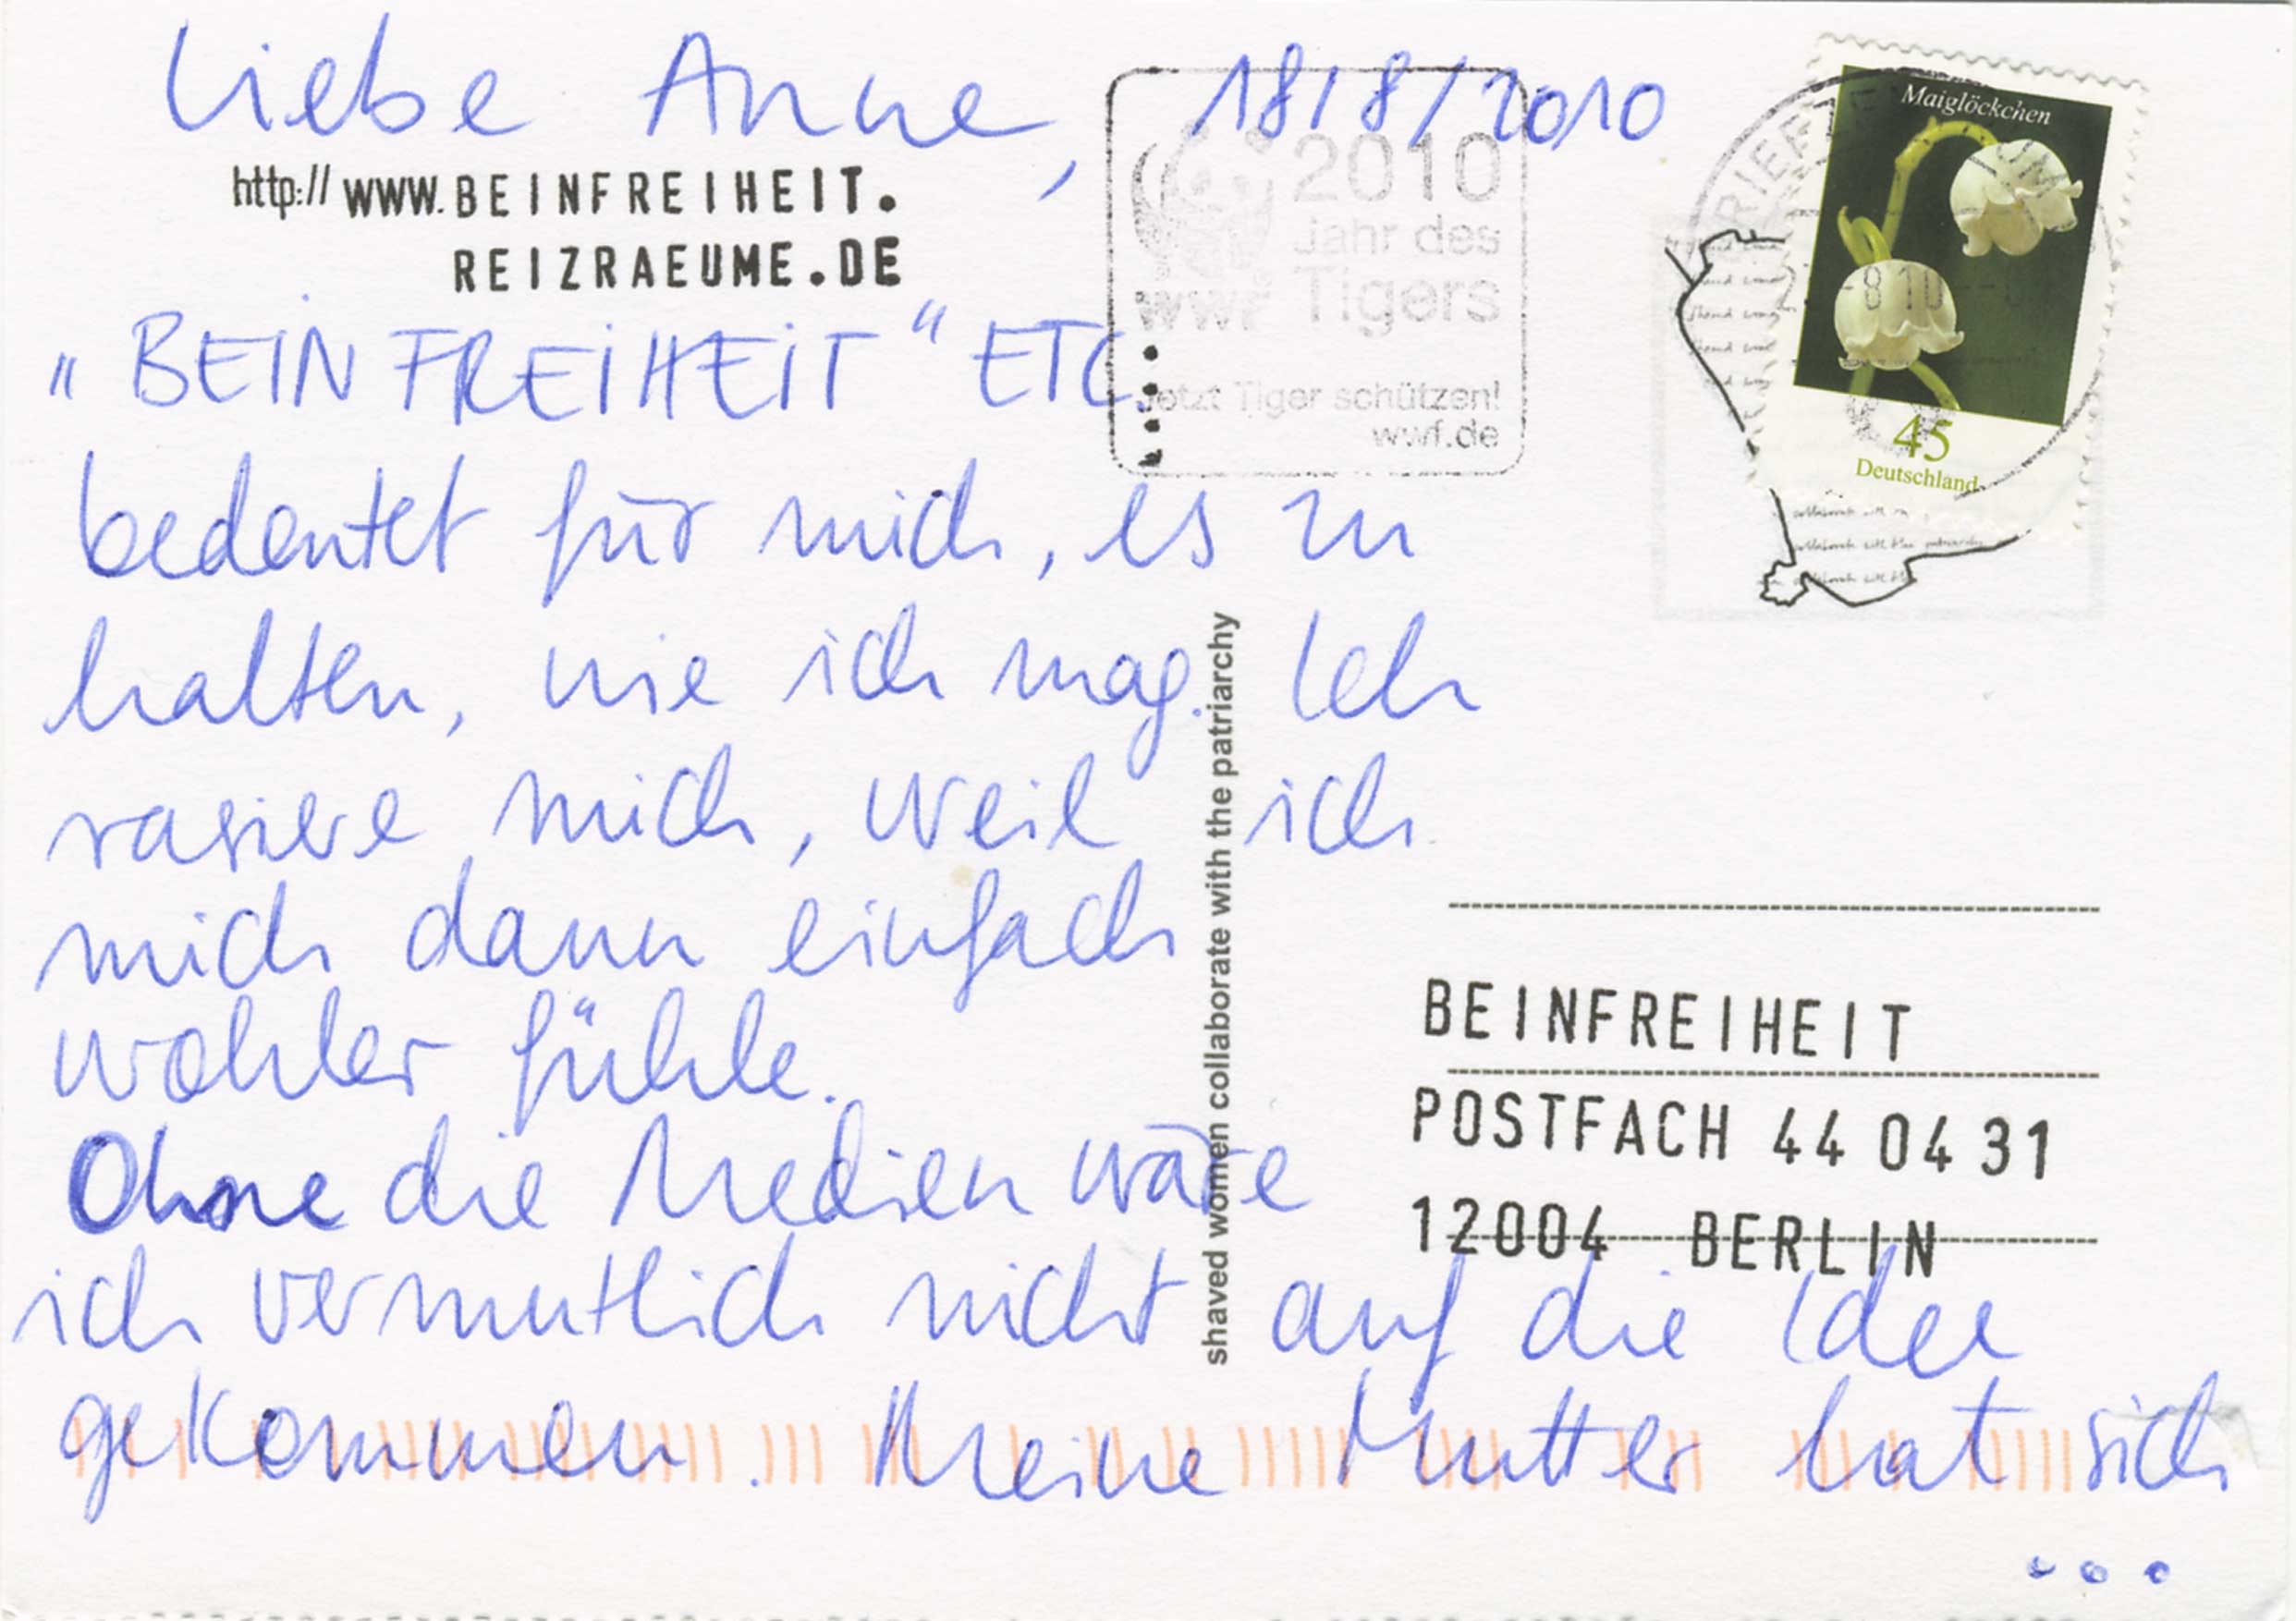 Liebe Anne, 18/8/2010
http:// WWW. BEINFREIHEIT.
REIZRAEUME.DE
2010
Jahr des
Tigers
WWF
Jetzt Tiger schützen!
wwf.de
Maiglöckchen
45
Deutschland
„BEINFREIHEIT" ETC.
bedeutet für mich, es zu
halten, wie ich mag. Ich
rasiere mich, weil ich
mich dann einfach
wohler fühle.
Ohne die Medien wäre
ich vermutlich nicht auf die Idee
gekommen. Meine Mutter hat sich
...
shaved women collaborate with the patriarchy
BEINFREIHEIT
POSTFACH 44 04 31
12004 BERLIN